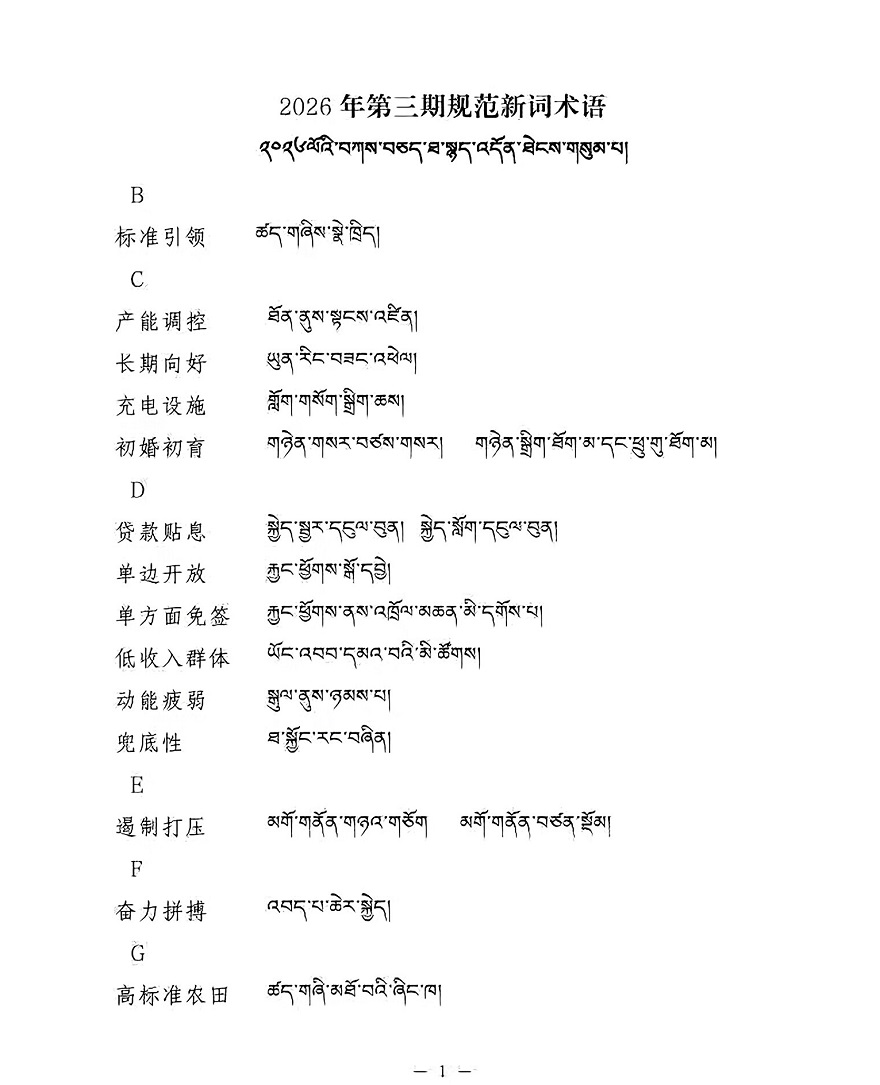 2026 年第三期规范新词术语
༢༠༢༦ལོའི་བཀས་བཅད་ཐ་སྙད་འདོན་ཐེངས་གསུམ་པ།
B
标准引领 ཚད་གཞིས་སྣེ་ཁྲིད།
C
产能调控 ཐོན་ནུས་སྟངས་འཛིན།
长期向好 ཡུན་རིང་བཟང་འཕེལ།
充电设施 གློག་གསོག་སྒྲིག་ཆས།
初婚初育 གཉེན་གསར་བཙས་གསར། གཉེན་སྒྲིག་ཐོག་མ་དང་ཕྲུ་གུ་ཐོག་མ།
D
贷款贴息 སྐྱེད་སྦྱར་དངུལ་བུན། སྐྱེད་སློག་དངུལ་བུན།
单边开放 རྐྱང་ཕྱོགས་སྒོ་དབྱེ།
单方面免签 རྐྱང་ཕྱོགས་ནས་འཁྲོལ་མཆན་མི་དགོས་པ།
低收入群体 ཡོང་འབབ་དམའ་བའི་མི་ཚོགས།
动能疲弱 སྒུལ་ནུས་ཉམས་པ།
兜底性 ཐ་སྐྱོང་རང་བཞིན།
E
遏制打压 མགོ་གནོན་གཉའ་གཅོག མགོ་གནོན་བཙན་སྡོམ།
F
奋力拼搏 འབད་པ་ཆེར་སྐྱེད།
G
高标准农田 ཚད་གཞི་མཐོ་བའི་ཞིང་ཁ།
— 1 —